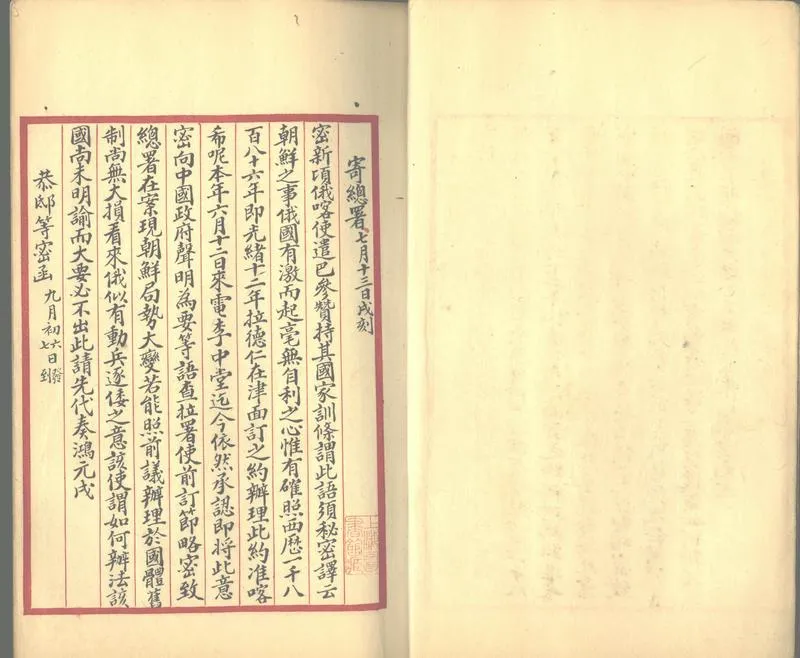 寄總署 七月十三日戌刻
密新頃俄喀使遣巴參贊持其國家訓條謂此語須秘密譯云
朝鮮之事俄國有激而起毫無自利之心惟有確照西歷一千八
百八十六年即光緒十二年拉德仁在津面訂之約辦理此約准喀
希呢本年六月十二日來電李中堂迄今依然承認即將此意
密向中國政府聲明為要等語查拉署使前訂節略密致
總署在案現朝鮮局勢大變若能照前議辦理於國體舊
制尚無大損看來俄似有動兵逐倭之意該使謂如何辦法該
國尚未明諭而大要必不出此請先代奏鴻元戌
恭邸等密函 九月初六日發七到